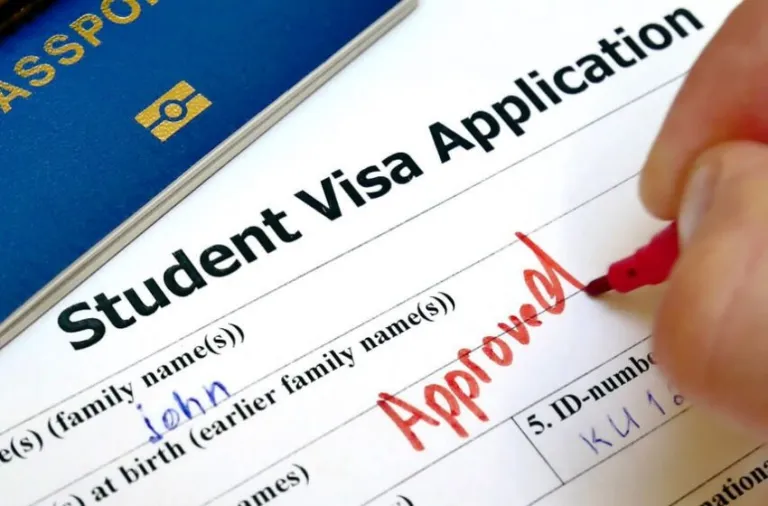 ASSPO
Student Visa Application
e(s) (family name(s))
john
s) at birth (earlier family name(s))
Approved
5. ID-numbe
KU 18
ames)
nationa